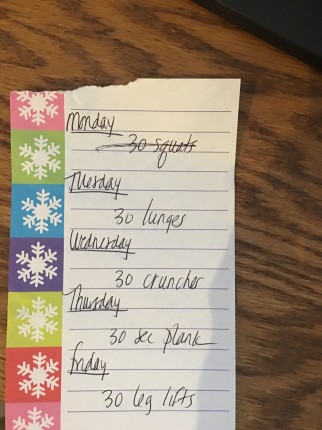 Monday
30 squats
Tuesday
30 lunges
Wednesday
30 crunches
Thursday
30 sec plank
Friday
30 leg lifts